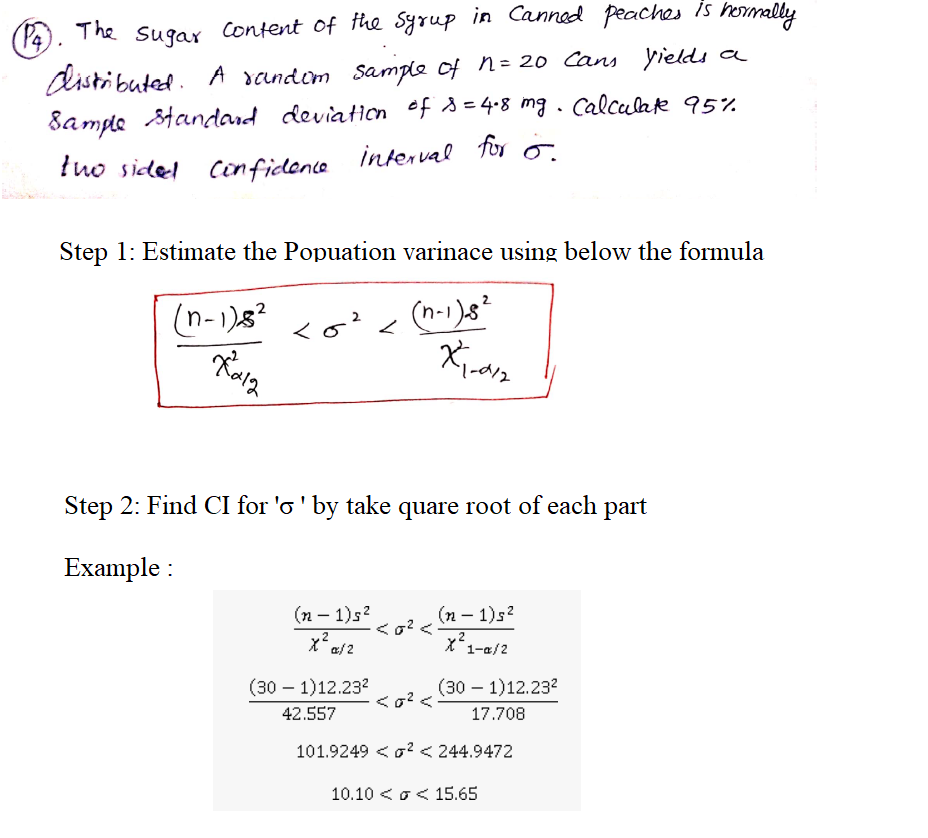 (P4). The sugar content of the syrup in canned peaches is normally
distributed. A random sample of n = 20 cans yields a
sample standard deviation of s = 4.8 mg. Calculate 95%
two sided confidence interval for σ.
Step 1: Estimate the Popuation varinace using below the formula
(n-1)s² / χ²α/2 < σ² < (n-1)s² / χ²1-α/2
Step 2: Find CI for 'σ ' by take quare root of each part
Example :
(n − 1)s² / χ²α/2 < σ² < (n − 1)s² / χ²1−α/2
(30 − 1)12.23² / 42.557 < σ² < (30 − 1)12.23² / 17.708
101.9249 < σ² < 244.9472
10.10 < σ < 15.65